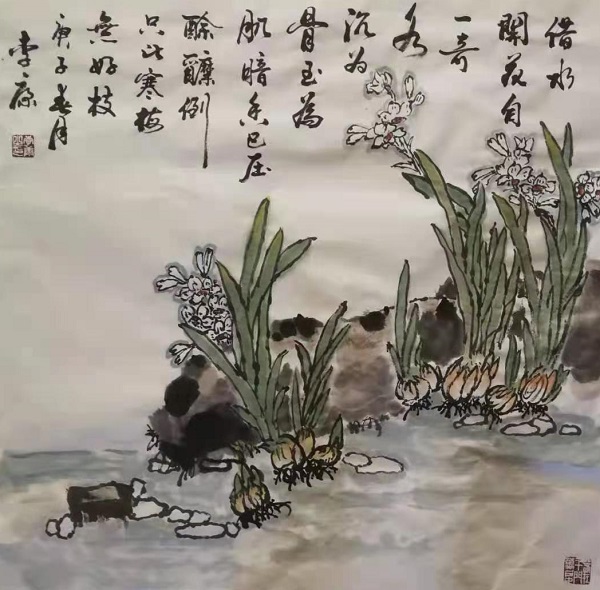 借水
開花自
一奇
水
沉为
骨玉為
肌暗香已压
酴醾倒
只比寒梅
無好枝
庚子春月
李